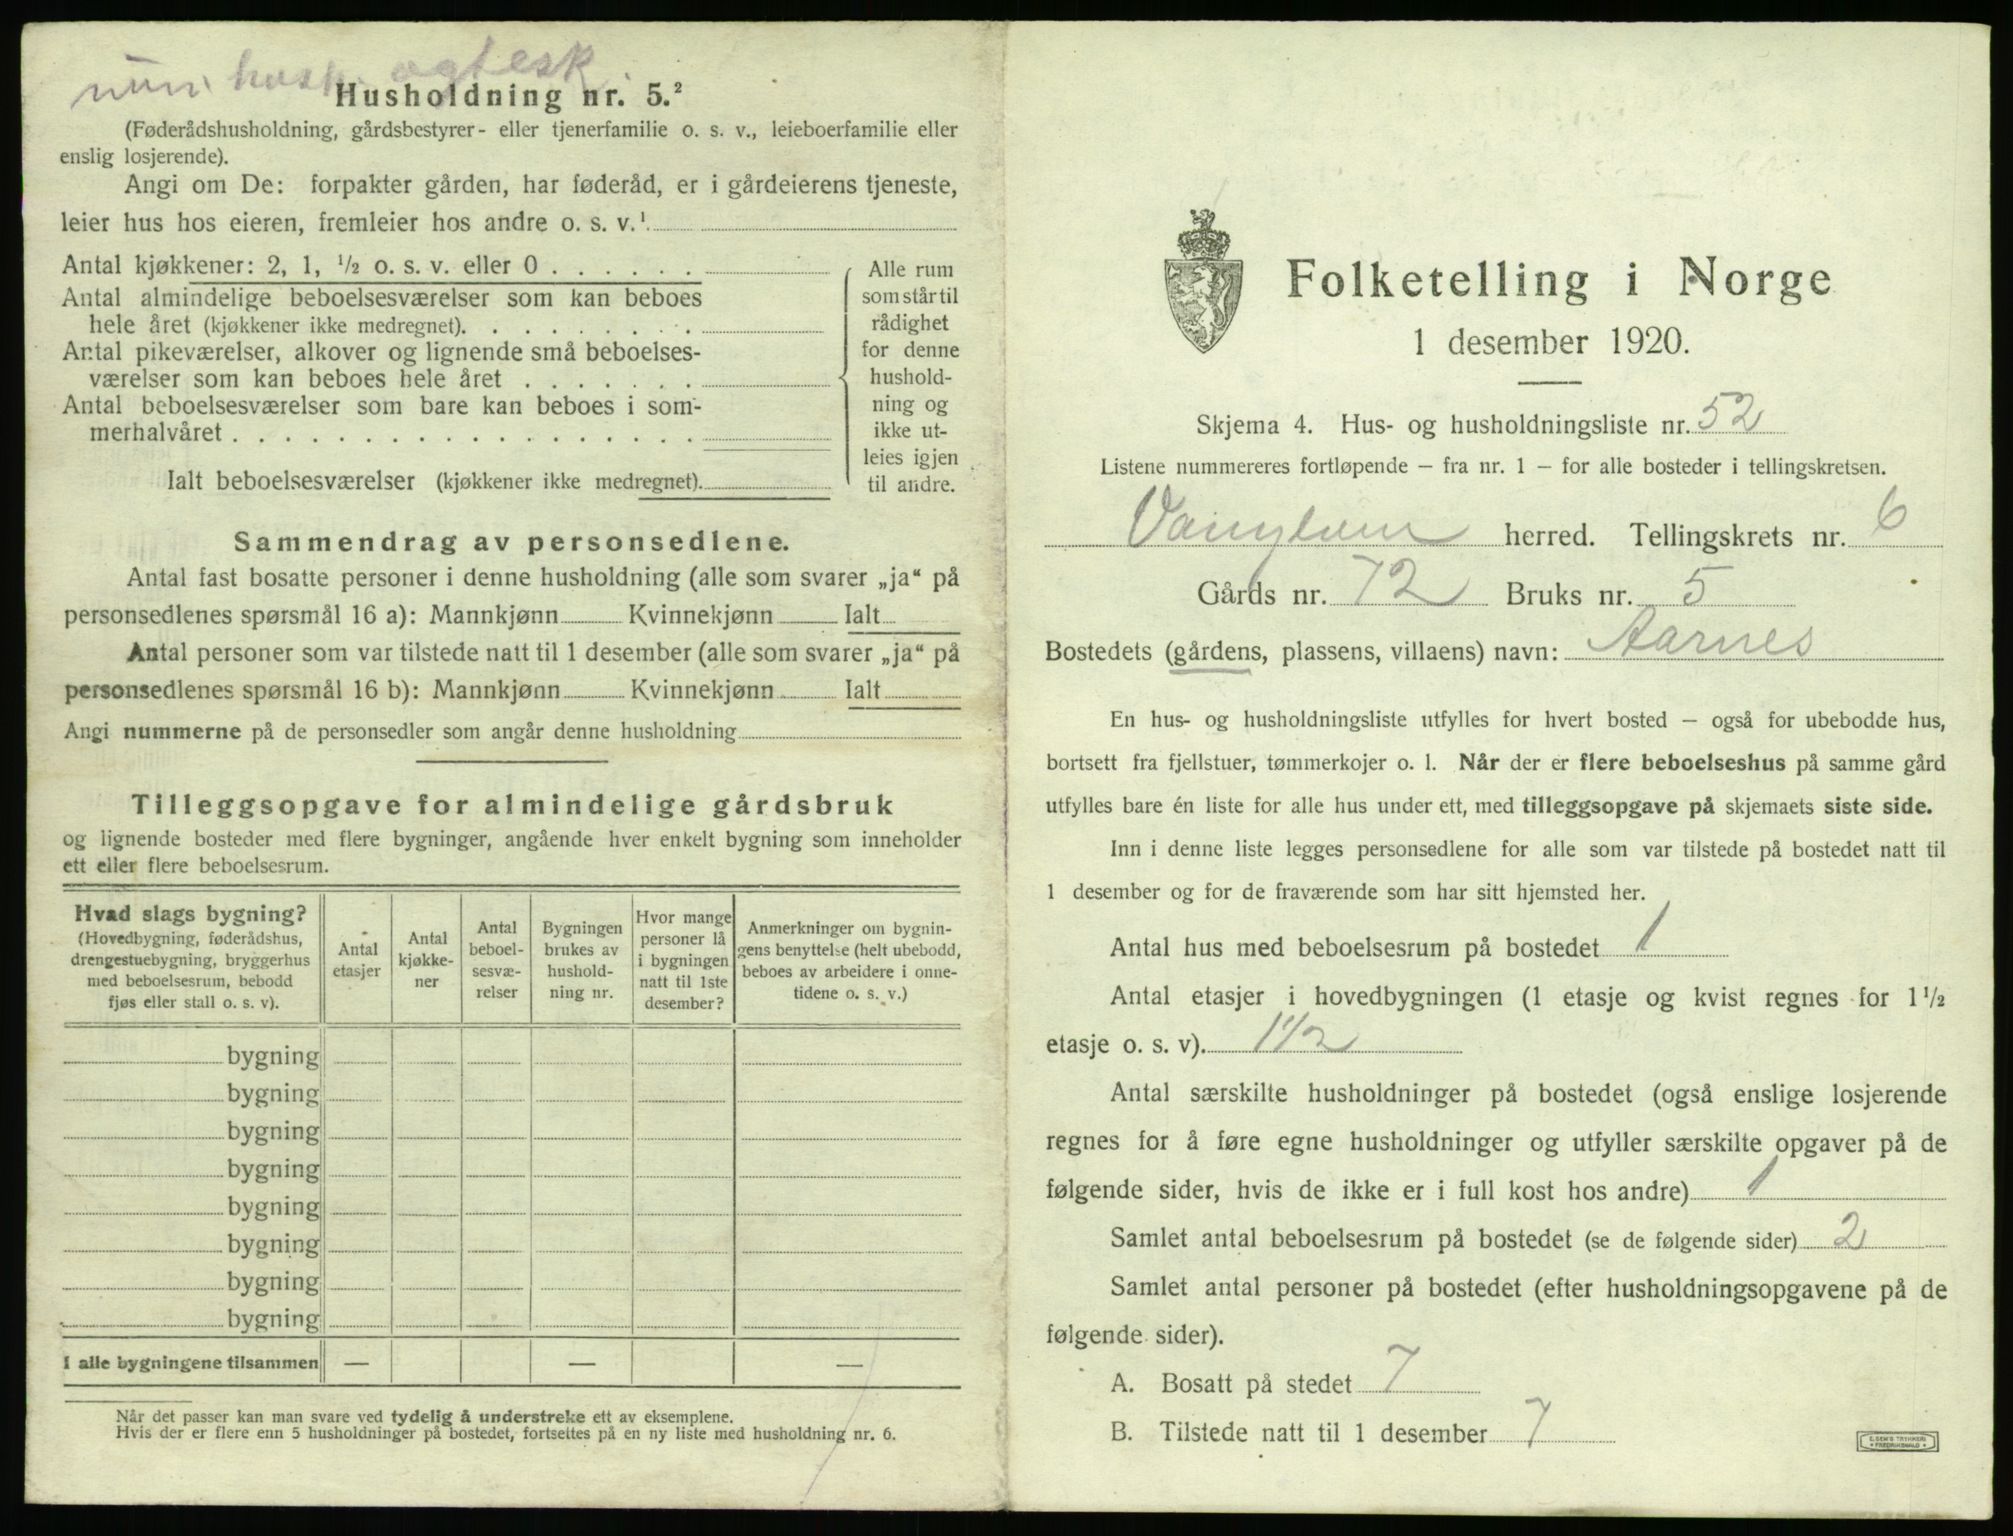 hush. ogtesk.
Husholdning nr. 5.²
(Føderådshusholdning, gårdsbestyrer- eller tjenerfamilie o. s. v., leieboerfamilie eller
enslig losjerende).
Angi om De: forpakter gården, har føderåd, er i gårdeierens tjeneste,
leier hus hos eieren, fremleier hos andre o. s. v.¹
Antal kjøkkener: 2, 1, ½ o. s. v. eller 0 . . . . . .
Antal almindelige beboelsesværelser som kan beboes
hele året (kjøkkener ikke medregnet). . . . . . . . .
Antal pikeværelser, alkover og lignende små beboelses-
værelser som kan beboes hele året . . . . . . .
Antal beboelsesværelser som bare kan beboes i som-
merhalvåret . . . . . . . . . . . . . . . . . .
Ialt beboelsesværelser (kjøkkener ikke medregnet).
Alle rum
som står til
rådighet
for denne
hushold-
ning og
ikke ut-
leies igjen
til andre.
Sammendrag av personsedlene.
Antal fast bosatte personer i denne husholdning (alle som svarer „ja“ på
personsedlenes spørsmål 16 a): Mannkjønn Kvinnekjønn Ialt
Antal personer som var tilstede natt til 1 desember (alle som svarer „ja“ på
personsedlenes spørsmål 16 b): Mannkjønn Kvinnekjønn Ialt
Angi nummerne på de personsedler som angår denne husholdning
Tilleggsopgave for almindelige gårdsbruk
og lignende bosteder med flere bygninger, angående hver enkelt bygning som inneholder
ett eller flere beboelsesrum.
Hvad slags bygning?
(Hovedbygning, føderådshus,
drengestuebygning, bryggerhus
med beboelsesrum, bebodd
fjøs eller stall o. s. v).
Antal
etasjer
Antal
kjøkke-
ner
Antal
beboel-
sesvæ-
relser
Bygningen
brukes av
hushold-
ning nr.
Hvor mange
personer lå
i bygningen
natt til 1ste
desember?
Anmerkninger om bygnin-
gens benyttelse (helt ubebodd,
beboes av arbeidere i onne-
tidene o. s. v.)
bygning
bygning
bygning
bygning
bygning
bygning
bygning
bygning
I alle bygningene tilsammen — — —
Når det passer kan man svare ved tydelig å understreke ett av eksemplene.
Hvis der er flere enn 5 husholdninger på bostedet, fortsettes på en ny liste med husholdning nr. 6.
Folketelling i Norge
1 desember 1920.
Skjema 4. Hus- og husholdningsliste nr. 52
Listene nummereres fortløpende – fra nr. 1 – for alle bosteder i tellingskretsen.
Vanylven herred. Tellingskrets nr. 6
Gårds nr. 72 Bruks nr. 5
Bostedets (gårdens, plassens, villaens) navn: Aarnes
En hus- og husholdningsliste utfylles for hvert bosted – også for ubebodde hus,
bortsett fra fjellstuer, tømmerkojer o. l. Når der er flere beboelseshus på samme gård
utfylles bare én liste for alle hus under ett, med tilleggsopgave på skjemaets siste side.
Inn i denne liste legges personsedlene for alle som var tilstede på bostedet natt til
1 desember og for de fraværende som har sitt hjemsted her.
Antal hus med beboelsesrum på bostedet 1
Antal etasjer i hovedbygningen (1 etasje og kvist regnes for 1½
etasje o. s. v). 1½
Antal særskilte husholdninger på bostedet (også enslige losjerende
regnes for å føre egne husholdninger og utfyller særskilte opgaver på de
følgende sider, hvis de ikke er i full kost hos andre) 1
Samlet antal beboelsesrum på bostedet (se de følgende sider) 2
Samlet antal personer på bostedet (efter husholdningsopgavene på de
følgende sider).
A. Bosatt på stedet 7
B. Tilstede natt til 1 desember 7